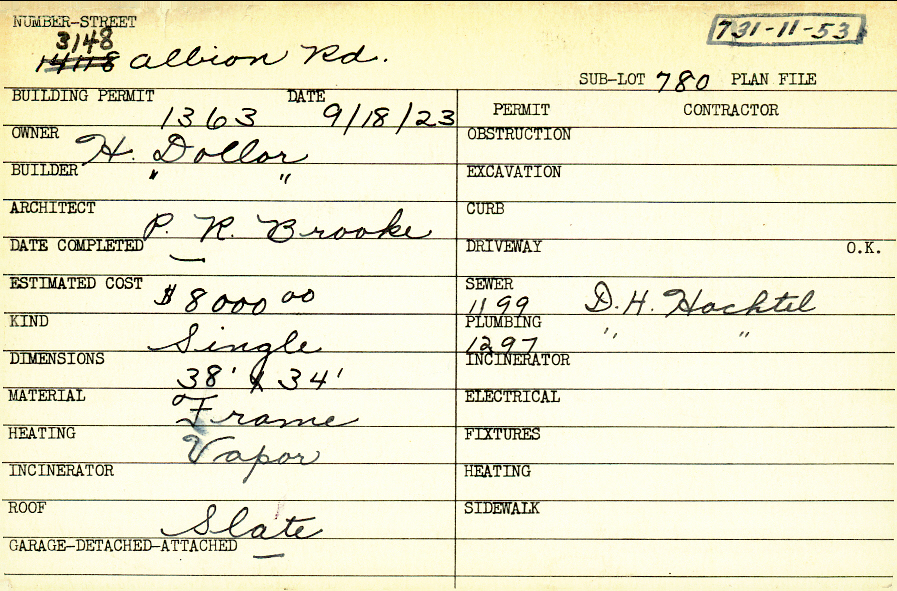 NUMBER-STREET
731-11-53
3148
14118 Albion Rd.
SUB-LOT 780 PLAN FILE
BUILDING PERMIT 1363 DATE 9/18/23
PERMIT CONTRACTOR
OWNER H. Dollar
OBSTRUCTION
BUILDER " "
EXCAVATION
ARCHITECT P. R. Brooke
CURB
DATE COMPLETED —
DRIVEWAY O.K.
ESTIMATED COST $8000 00
SEWER 1199 D. H. Hachtel
KIND Single
PLUMBING 1297 " "
DIMENSIONS 38' x 34'
INCINERATOR
MATERIAL Frame
ELECTRICAL
HEATING Vapor
FIXTURES
INCINERATOR
HEATING
ROOF Slate
SIDEWALK
GARAGE-DETACHED-ATTACHED —